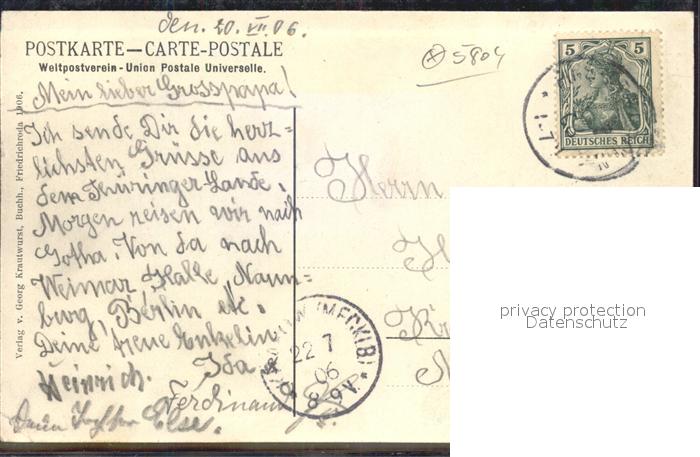 den. 20. VII. 06.
POSTKARTE—CARTE-POSTALE
Weltpostverein - Union Postale Universelle.
5804
5 5
DEUTSCHES REICH
Mein lieber Grosspapa!
Ich sende Dir die herz=
lichsten Grüsse aus
dem Thüringer Lande.
Morgen reisen wir nach
Gotha. Von da nach
Weimar, Halle, Naum=
burg, Berlin etc.
Deine treue Enkelin
Ida
Heinrich.
Ferdinand
Else.
Herrn
(MECKLB)
22 7
06
8-9V.
Verlag v. Georg Krautwurst, Buchh., Friedrichroda 1906.
privacy protection
Datenschutz